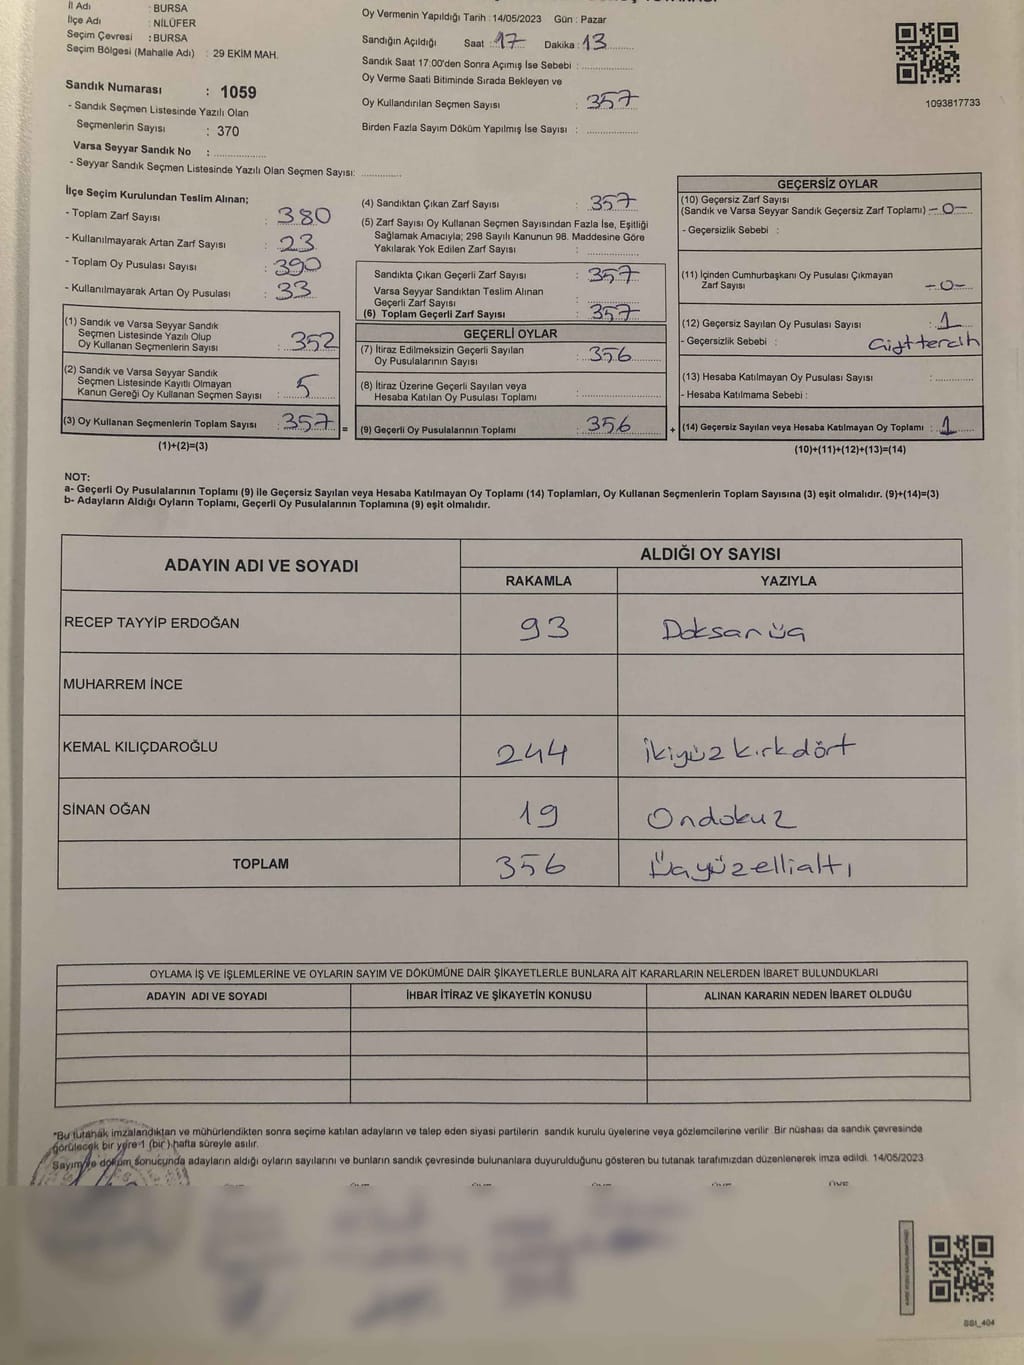 İl Adı : BURSA
İlçe Adı : NİLÜFER
Seçim Çevresi : BURSA
Seçim Bölgesi (Mahalle Adı) : 29 EKİM MAH.
Sandık Numarası : 1059
- Sandık Seçmen Listesinde Yazılı Olan
Seçmenlerin Sayısı : 370
Varsa Seyyar Sandık No : ................
- Seyyar Sandık Seçmen Listesinde Yazılı Olan Seçmen Sayısı: ............
Oy Vermenin Yapıldığı Tarih : 14/05/2023 Gün : Pazar
Sandığın Açıldığı Saat : 17 Dakika : 13
Sandık Saat 17:00'den Sonra Açımış İse Sebebi : ................
Oy Verme Saati Bitiminde Sırada Bekleyen ve
Oy Kullandırılan Seçmen Sayısı : 357
Birden Fazla Sayım Döküm Yapılmış İse Sayısı : ................
1093817733
İlçe Seçim Kurulundan Teslim Alınan;
- Toplam Zarf Sayısı : 380
- Kullanılmayarak Artan Zarf Sayısı : 23
- Toplam Oy Pusulası Sayısı : 390
- Kullanılmayarak Artan Oy Pusulası : 33
(1) Sandık ve Varsa Seyyar Sandık
Seçmen Listesinde Yazılı Olup
Oy Kullanan Seçmenlerin Sayısı : 352
(2) Sandık ve Varsa Seyyar Sandık
Seçmen Listesinde Kayıtlı Olmayan
Kanun Gereği Oy Kullanan Seçmen Sayısı : 5
(3) Oy Kullanan Seçmenlerin Toplam Sayısı : 357 =
(1)+(2)=(3)
(4) Sandıktan Çıkan Zarf Sayısı : 357
(5) Zarf Sayısı Oy Kullanan Seçmen Sayısından Fazla İse, Eşitliği
Sağlamak Amacıyla; 298 Sayılı Kanunun 98. Maddesine Göre
Yakılarak Yok Edilen Zarf Sayısı : ................
Sandıkta Çıkan Geçerli Zarf Sayısı : 357
Varsa Seyyar Sandıktan Teslim Alınan
Geçerli Zarf Sayısı : ................
(6) Toplam Geçerli Zarf Sayısı : 357
GEÇERLİ OYLAR
(7) İtiraz Edilmeksizin Geçerli Sayılan
Oy Pusulalarının Sayısı : 356
(8) İtiraz Üzerine Geçerli Sayılan veya
Hesaba Katılan Oy Pusulası Toplamı : ................
(9) Geçerli Oy Pusulalarının Toplamı : 356 +
GEÇERSİZ OYLAR
(10) Geçersiz Zarf Sayısı
(Sandık ve Varsa Seyyar Sandık Geçersiz Zarf Toplamı) -0-
- Geçersizlik Sebebi :
(11) İçinden Cumhurbaşkanı Oy Pusulası Çıkmayan
Zarf Sayısı -0-
(12) Geçersiz Sayılan Oy Pusulası Sayısı : 1
- Geçersizlik Sebebi : Çift tercih
(13) Hesaba Katılmayan Oy Pusulası Sayısı : ............
- Hesaba Katılmama Sebebi :
(14) Geçersiz Sayılan veya Hesaba Katılmayan Oy Toplamı : 1
(10)+(11)+(12)+(13)=(14)
NOT:
a- Geçerli Oy Pusulalarının Toplamı (9) ile Geçersiz Sayılan veya Hesaba Katılmayan Oy Toplamı (14) Toplamları, Oy Kullanan Seçmenlerin Toplam Sayısına (3) eşit olmalıdır. (9)+(14)=(3)
b- Adayların Aldığı Oyların Toplamı, Geçerli Oy Pusulalarının Toplamına (9) eşit olmalıdır.
ADAYIN ADI VE SOYADI ALDIĞI OY SAYISI
RAKAMLA YAZIYLA
RECEP TAYYİP ERDOĞAN 93 Doksanüç
MUHARREM İNCE
KEMAL KILIÇDAROĞLU 244 ikiyüzkırkdört
SİNAN OĞAN 19 Ondokuz
TOPLAM 356 Üçyüzellialtı
OYLAMA İŞ VE İŞLEMLERİNE VE OYLARIN SAYIM VE DÖKÜMÜNE DAİR ŞİKAYETLERLE BUNLARA AİT KARARLARIN NELERDEN İBARET BULUNDUKLARI
ADAYIN ADI VE SOYADI İHBAR İTİRAZ VE ŞİKAYETİN KONUSU ALINAN KARARIN NEDEN İBARET OLDUĞU
*Bu tutanak imzalandıktan ve mühürlendikten sonra seçime katılan adayların ve talep eden siyasi partilerin sandık kurulu üyelerine veya gözlemcilerine verilir. Bir nüshası da sandık çevresinde
görülecek bir yere 1 (bir) hafta süreyle asılır.
Sayım ve döküm sonucunda adayların aldığı oyların sayılarını ve bunların sandık çevresinde bulunanlara duyurulduğunu gösteren bu tutanak tarafımızdan düzenlenerek imza edildi. 14/05/2023